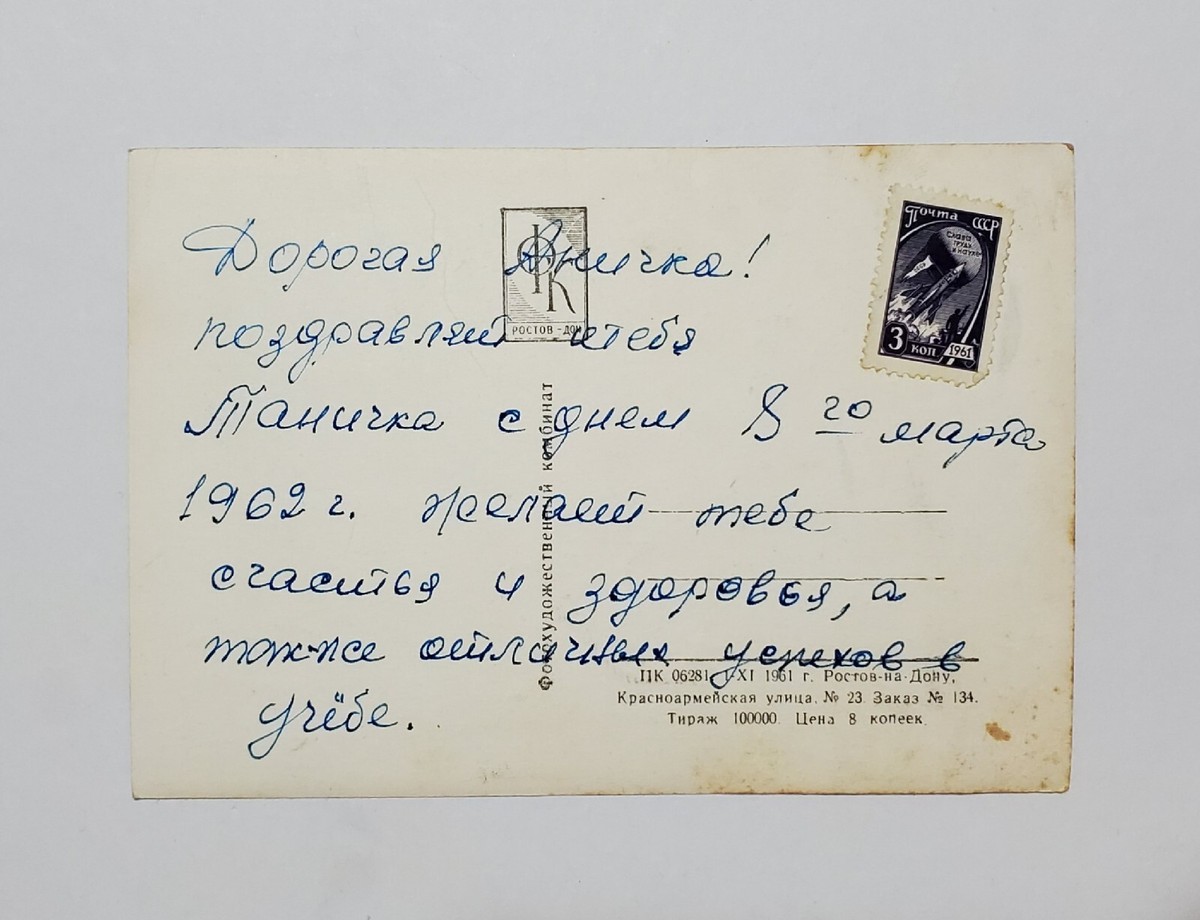 Дорогая Аничка!
поздравляем тебя
Таничка с днем 8 го марта
1962 г. желаем тебе
счастья и здоровья, а
также отличных успехов в
учёбе.
ФХК
РОСТОВ-ДОН
Фотохудожественный комбинат
Почта СССР
Слава
труду
и науке
СССР
3 коп 1961
ПК 06281 1-XI 1961 г. Ростов-на-Дону,
Красноармейская улица, № 23. Заказ № 134.
Тираж 100000. Цена 8 копеек.